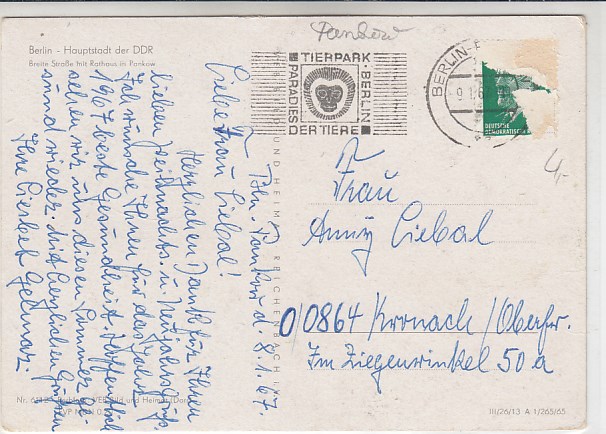 Pankow
Berlin - Hauptstadt der DDR
Breite Straße mit Rathaus in Pankow
TIERPARK
BERLIN
PARADIES
DER TIERE
BERLIN-
9.1.6
DEUTSCHE
DEMOKRATISCHE
4,-
Bln. Pankow d. 8.1.67.
Liebe Frau Liebal!
Herzlichen Dank für Ihren
lieben Weihnachts- u. Neujahrsgruß
Ich wünsche Ihnen für das Jahr
1967 beste Gesundheit. Hoffentlich
sehen wir uns diesen Sommer ge-
sund wieder. Mit herzlichen Grüßen
Ihre Liesbet
Frau
Anny Liebal
0/0864 Kronach/Oberfr.
Im Ziegenwinkel 50 a
REICHENBACH
Bild und Heimat
III/26/13 A 1/265/65